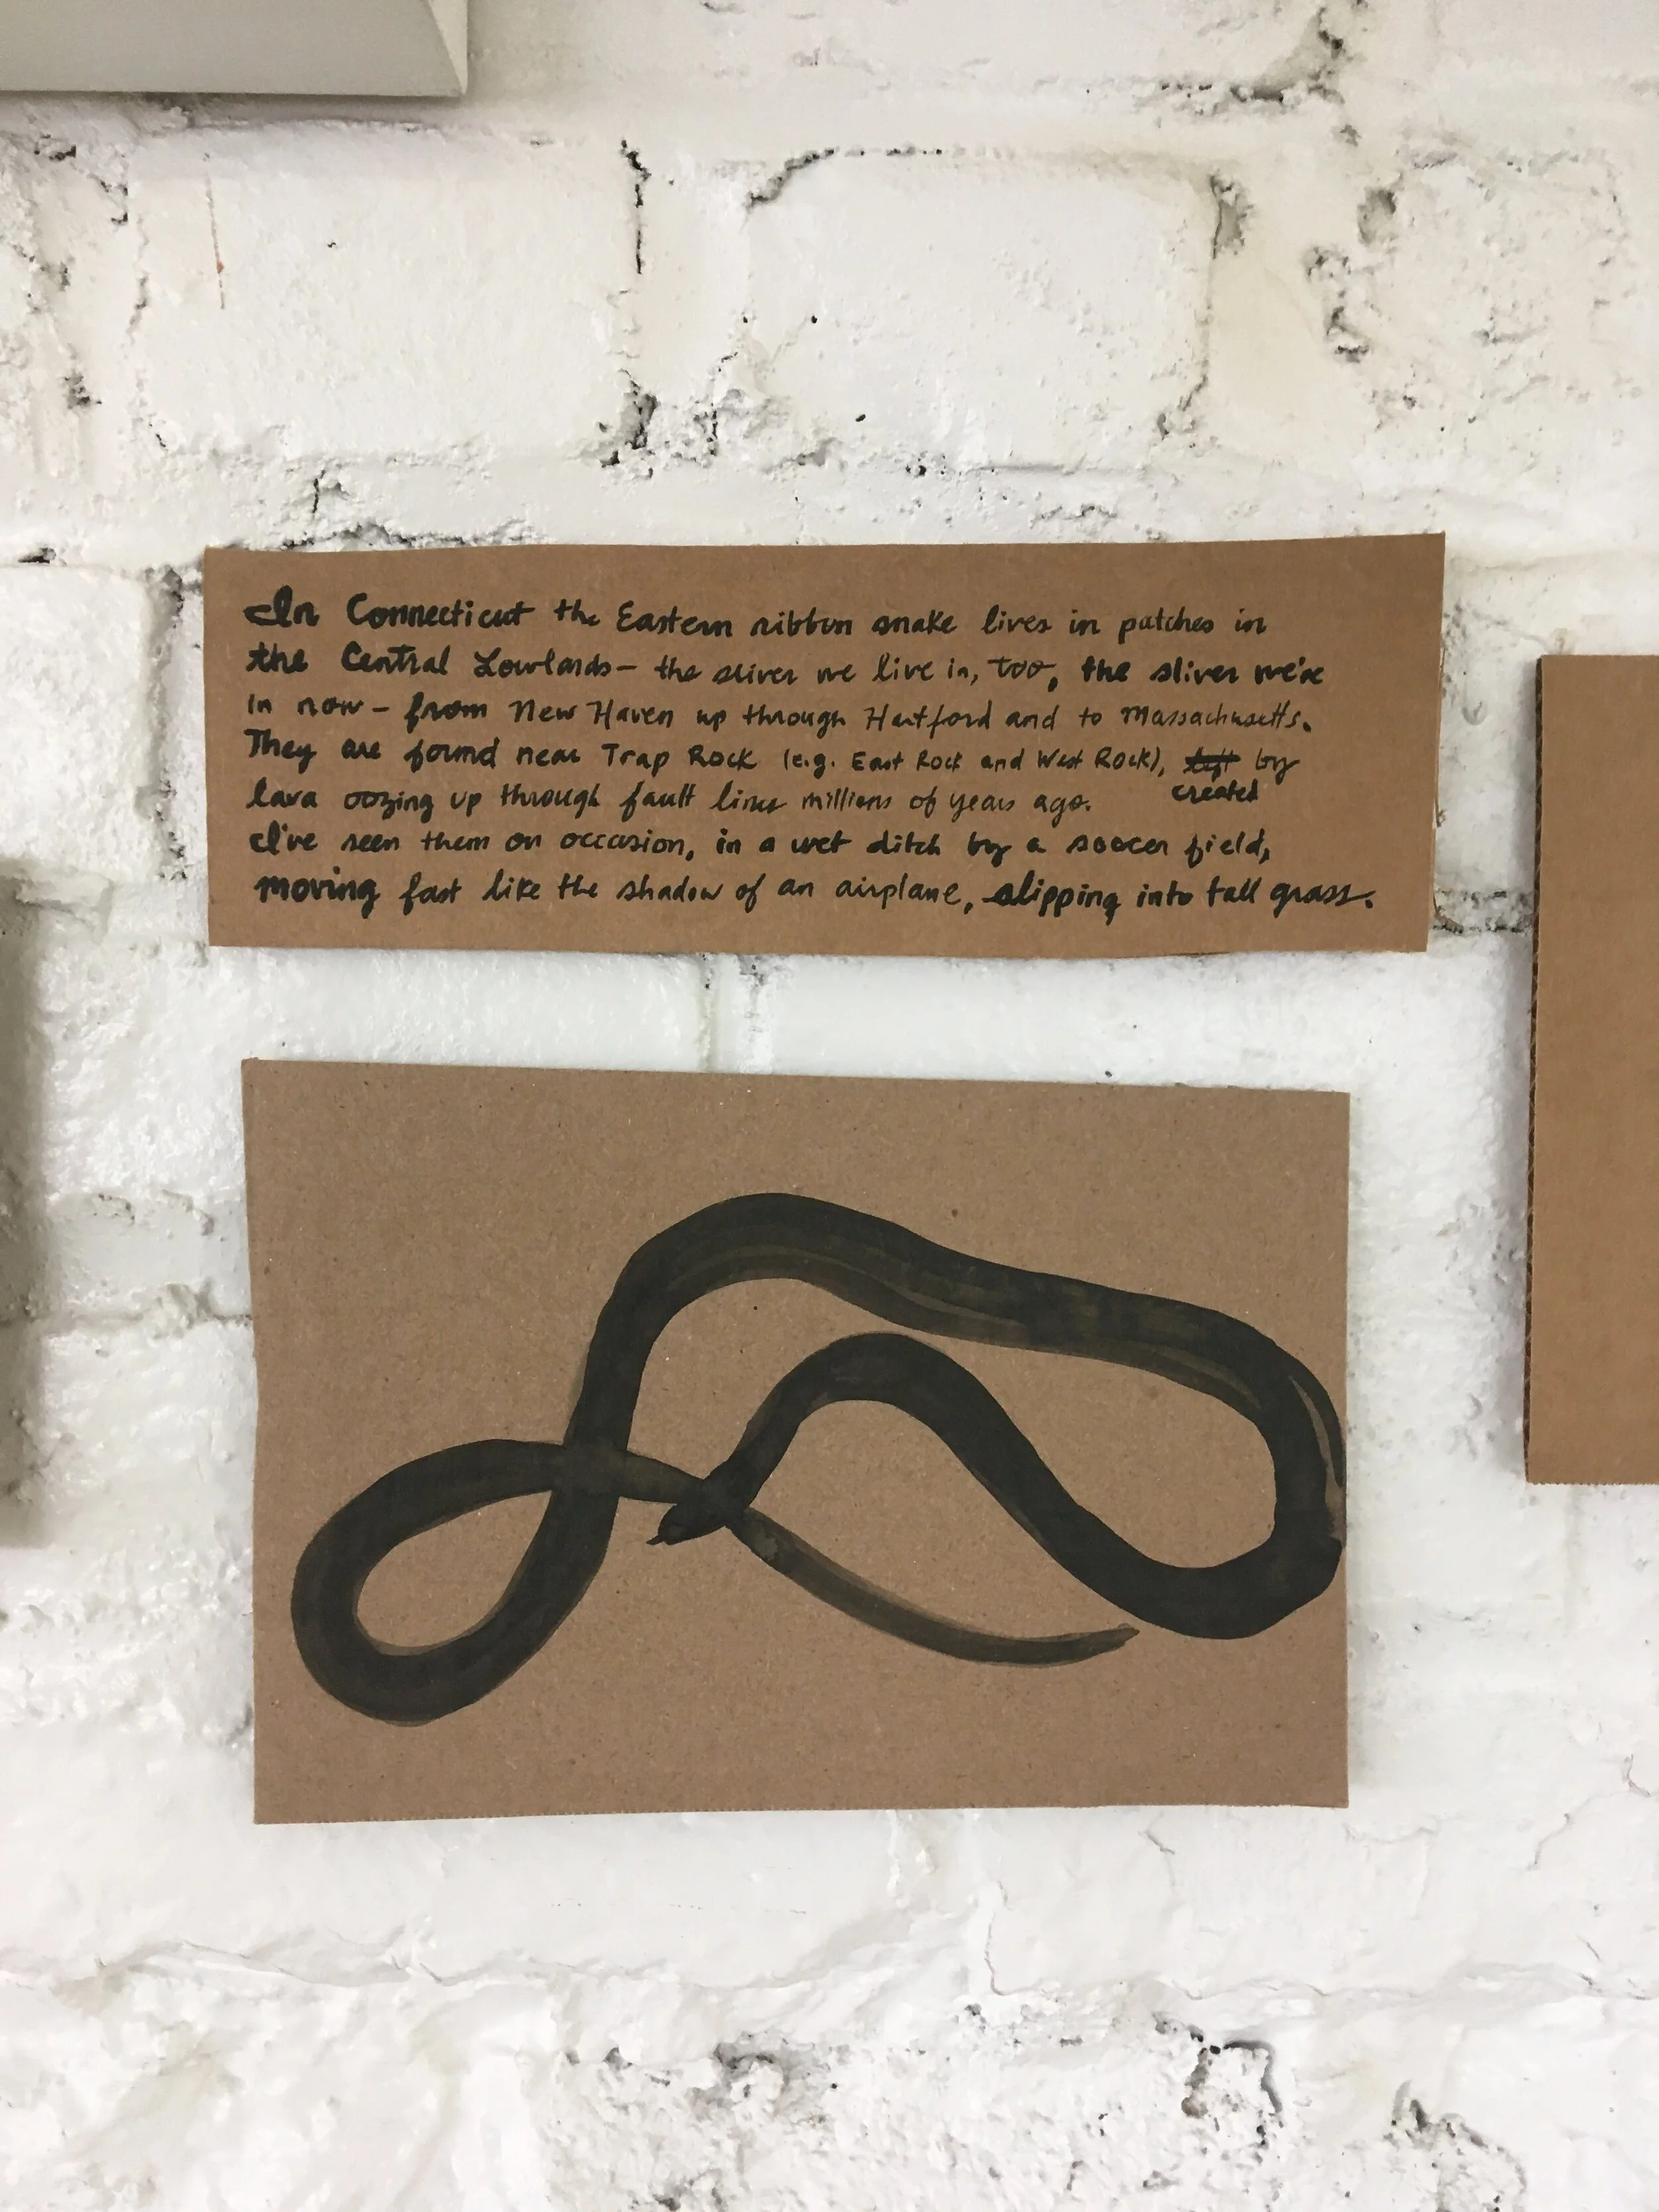 In Connecticut the Eastern ribbon snake lives in patches in
the Central Lowlands – the sliver we live in, too, the sliver we're
in now – from New Haven up through Hartford and to Massachusetts.
They are found near Trap Rock (e.g. East Rock and West Rock), left by
created
lava oozing up through fault lines millions of years ago.
I've seen them on occasion, in a wet ditch by a soccer field,
moving fast like the shadow of an airplane, slipping into tall grass.